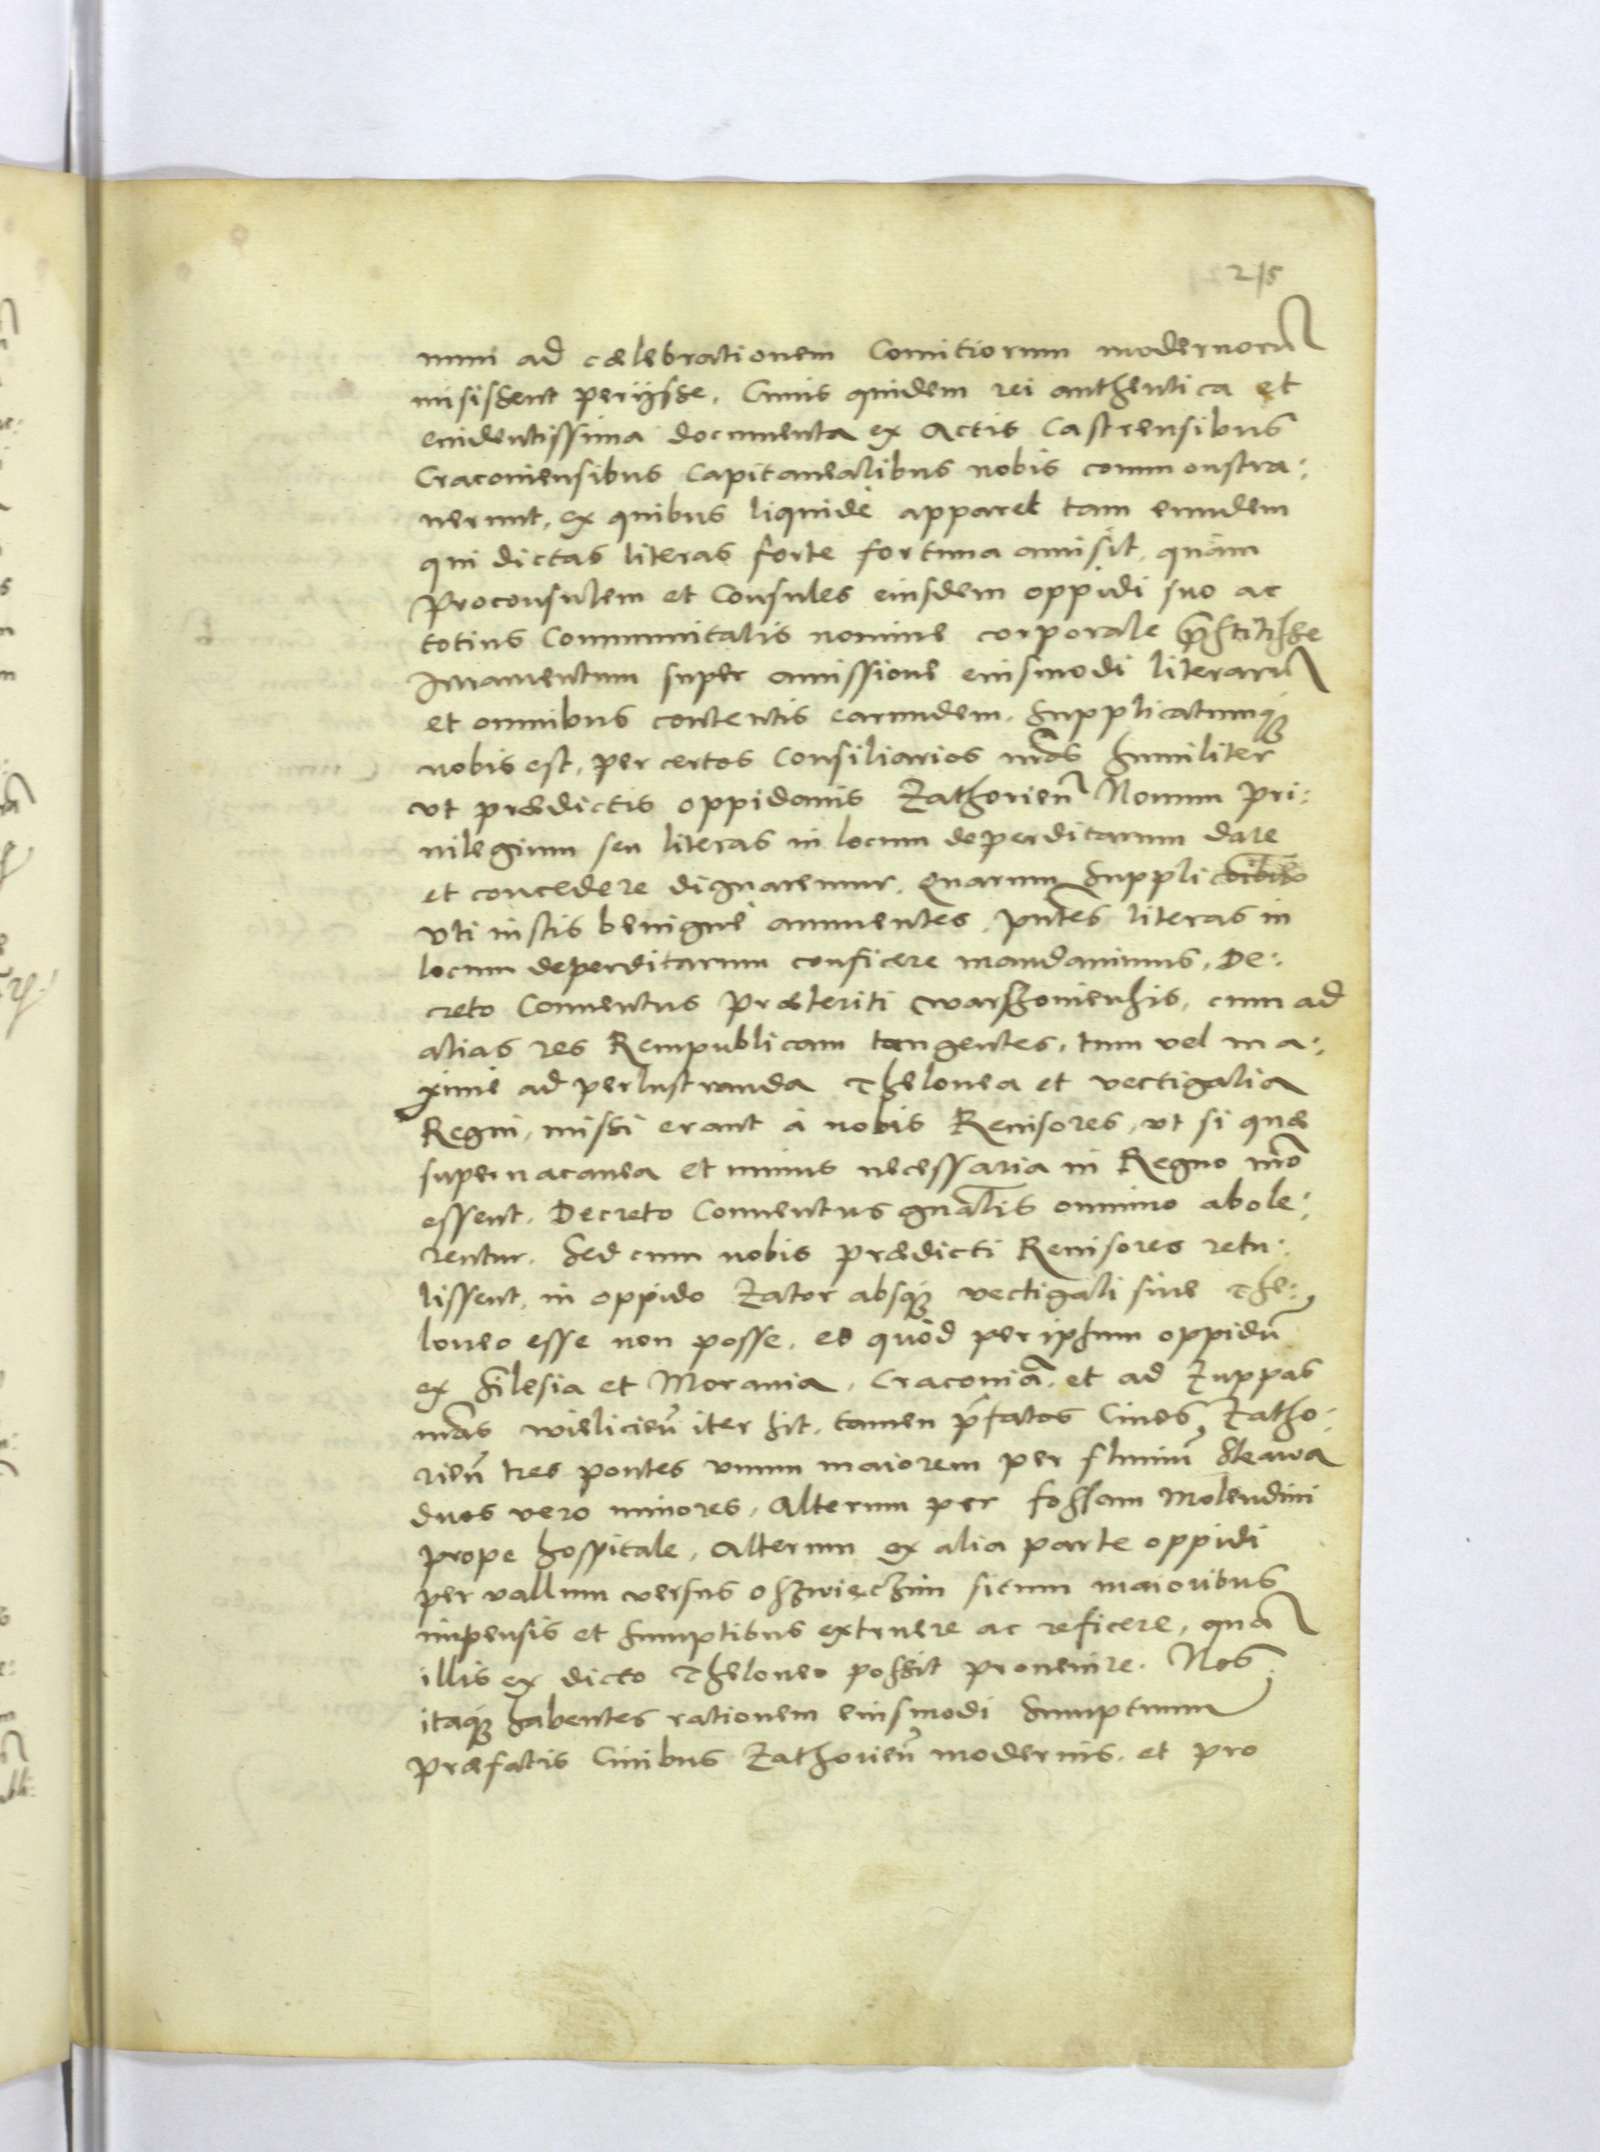 215
num ad cælebrationem Comitiorum modernorū
misissent perijsse. Cuius quidem rei authentica et
euidentissima documenta ex Actis Castrensibus
Cracouiensibus Capitanealibus nobis commonstra:
uerunt, ex quibus liquidè apparet tam eundem
qui dictas literas forte fortuna amisit, quàm
Proconsulem et Consules eiusdem oppidi suo ac
totius Communitatis nomine corporale p̄stitisse
Iuramentum super amissione eiusmodi literarū
et omnibus contentis earundem. Supplicatumq;
nobis est, per certos Consiliarios nr̄os humiliter
vt prædictis oppidanis Zathorien̄ Nouum Pri:
uilegium seu literas in locum deperditarum dare
et concedere dignaremur. Quarum
vti iustis benignè annuentes, pn̄tes literas in
locum deperditarum conficere mandauimus. De:
creto Conuentus Præteriti Warszouiensis, cum ad
alias res Rempublicam tangentes, tum vel ma:
ximè ad perlustranda Thelonea et vectigalia
Regni, missi erant à nobis Reuisores, vt si quæ
superuacanea et minus necessaria in Regno nr̄o
essent, Decreto Conuentus gnalis̄ omnino abole:
rentur. Sed cum nobis prædicti Reuisores retu:
lissent, in oppido Zator absq; vectigali siue The:
loneo esse non posse, eo quòd per ipsum oppidū
ex Silesia et Morauia, Cracouiā, et ad Zuppas
nr̄as Wielicien̄ iter sit, tamen p̄fatos Ciues Zatho:
rien̄ tres pontes vnum maiorem per fluuiū Skawa
duos vero minores, Alterum per fossam Molendini
prope hospitale, Alterum ex alia parte oppidi
per vallum versus Oszwięczim situm maioribus
impensis et sumptibus extruere ac reficere, quā
illis ex dicto Theloneo possit prouenire. Nos
itaq; habentes rationem eiusmodi sumptuum
præfatis Ciuibus Zathorien̄ modernis, et pro